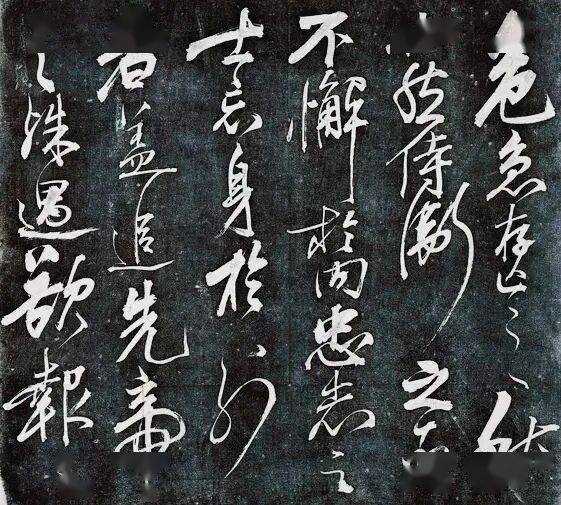 危急存亡之秋
然侍衛之
不懈於内忠志之
士忘身於外
者盖追先帝
之殊遇欲報